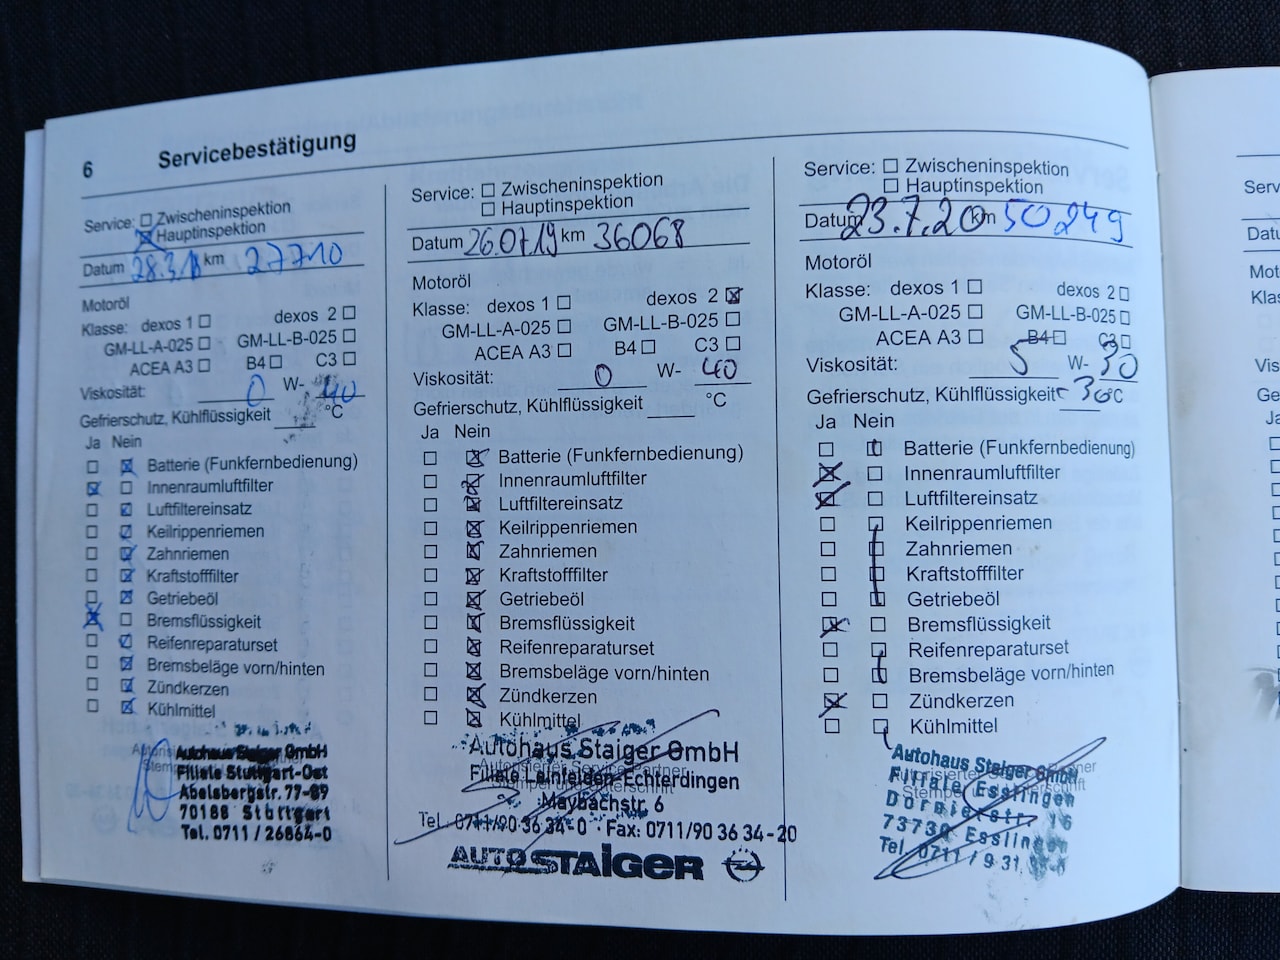 6 Servicebestätigung
Service: Zwischeninspektion
Hauptinspektion
Datum 28.3.18 km 27710
Motoröl
Klasse: dexos 1 dexos 2
GM-LL-A-025 GM-LL-B-025
ACEA A3 B4 C3
Viskosität: 0 W- 40
Gefrierschutz, Kühlflüssigkeit °C
Ja Nein
Batterie (Funkfernbedienung)
Innenraumluftfilter
Luftfiltereinsatz
Keilrippenriemen
Zahnriemen
Kraftstofffilter
Getriebeöl
Bremsflüssigkeit
Reifenreparaturset
Bremsbeläge vorn/hinten
Zündkerzen
Kühlmittel
Autohaus Staiger GmbH
Filiale Stuttgart-Ost
Abelsbergstr. 77-89
70188 Stuttgart
Tel. 0711 / 26864-0
Service: Zwischeninspektion
Hauptinspektion
Datum 26.07.19 km 36068
Motoröl
Klasse: dexos 1 dexos 2
GM-LL-A-025 GM-LL-B-025
ACEA A3 B4 C3
Viskosität: 0 W- 40
Gefrierschutz, Kühlflüssigkeit °C
Ja Nein
Batterie (Funkfernbedienung)
Innenraumluftfilter
Luftfiltereinsatz
Keilrippenriemen
Zahnriemen
Kraftstofffilter
Getriebeöl
Bremsflüssigkeit
Reifenreparaturset
Bremsbeläge vorn/hinten
Zündkerzen
Kühlmittel
Autohaus Staiger GmbH
Autorisierter Service Partner
Filiale Leinfelden-Echterdingen
Stempel und Unterschrift
Maybachstr. 6
Tel. 0711/90 36 34-0 · Fax: 0711/90 36 34-20
AUTO STAIGER
Service: Zwischeninspektion
Hauptinspektion
Datum 23.7.20 km 50249
Motoröl
Klasse: dexos 1 dexos 2
GM-LL-A-025 GM-LL-B-025
ACEA A3 B4 C3
Viskosität: 5 W- 30
Gefrierschutz, Kühlflüssigkeit -30°C
Ja Nein
Batterie (Funkfernbedienung)
Innenraumluftfilter
Luftfiltereinsatz
Keilrippenriemen
Zahnriemen
Kraftstofffilter
Getriebeöl
Bremsflüssigkeit
Reifenreparaturset
Bremsbeläge vorn/hinten
Zündkerzen
Kühlmittel
Autohaus Staiger GmbH
Filiale Esslingen
Dornierstr. 16
73730 Esslingen
Tel. 0711 / 9 31